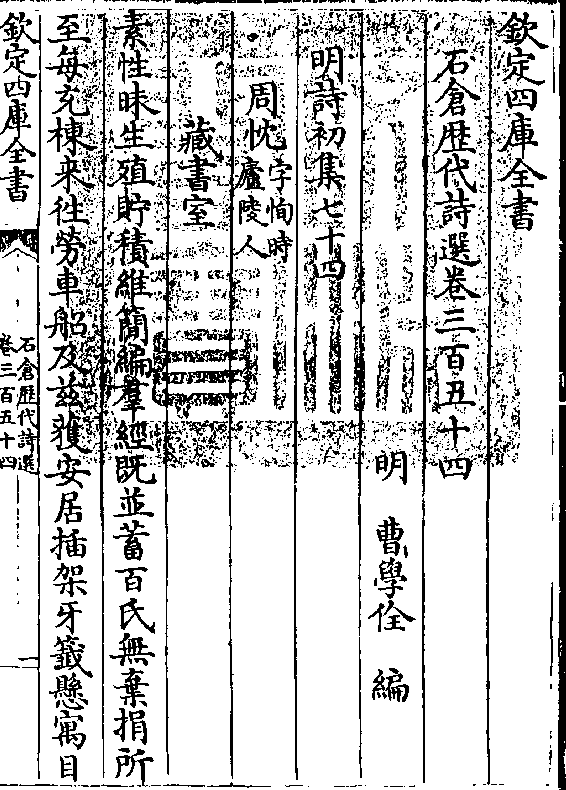 欽定四庫全書
石倉歴代詩選卷三百五十四
明 曹學佺 編
明詩初集七十四
周忱字恂時廬陵人
藏書室
素性昧生殖貯積維簡編羣經既並蓄百氏無棄捐所
至每充棟来往勞車船及兹獲安居插架牙籤懸寓目
欽定四庫全書
石倉歴代詩選
卷三百五十四
一